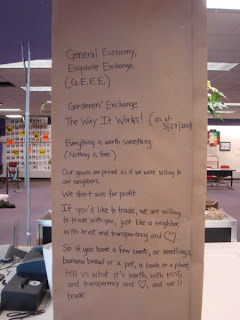 General Economy,
Exquisite Exchange
(G.E.E.E.)
Gardeners' Exchange
The Way It Works! (as of
3/27/2009)
Everything is worth something
(Nothing is free.)
Our goods are priced as if we were selling to
our neighbors.
We don't aim for profit
If you'd like to trade, we are willing
to trade with you, just like a neighbor,
with trust and transparency and ♡
So if you have a few seeds, or seedlings,
banana bread or a pot, a book or a plant,
tell us what it's worth, with trust
and transparency and ♡, and we'll
trade